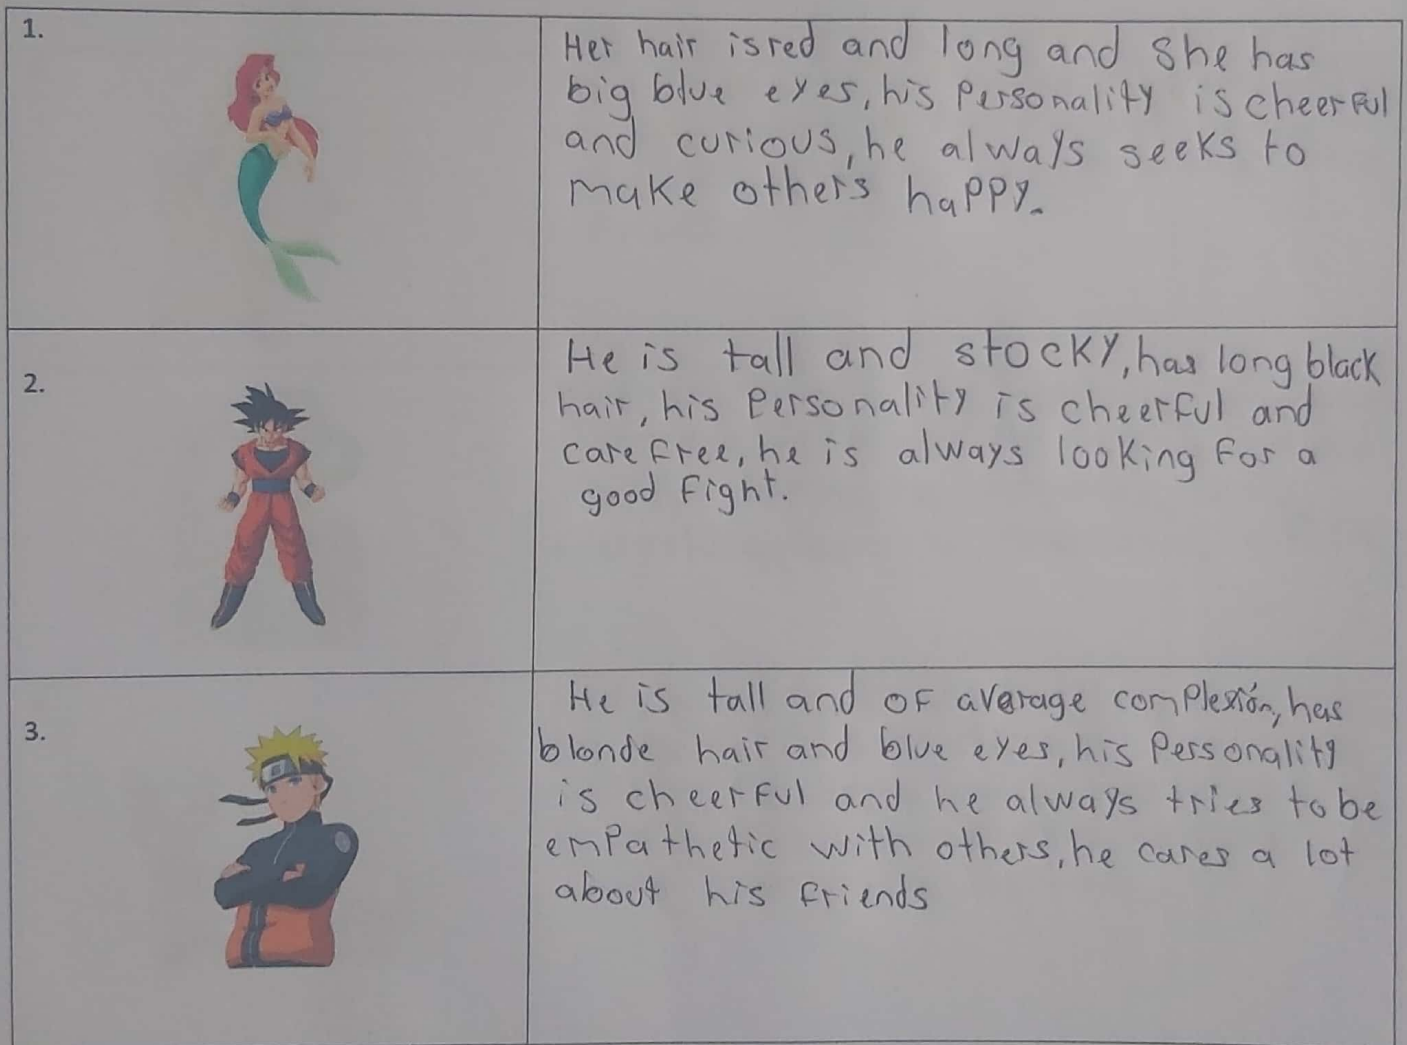 1.
Her hair is red and long and she has
big blue eyes, his Personality is cheerful
and curious, he always seeks to
make others happy.
2.
He is tall and stocky, has long black
hair, his Personality is cheerful and
carefree, he is always looking for a
good fight.
3.
He is tall and of average complexión, has
blonde hair and blue eyes, his Personality
is cheerful and he always tries to be
empathetic with others, he cares a lot
about his friends